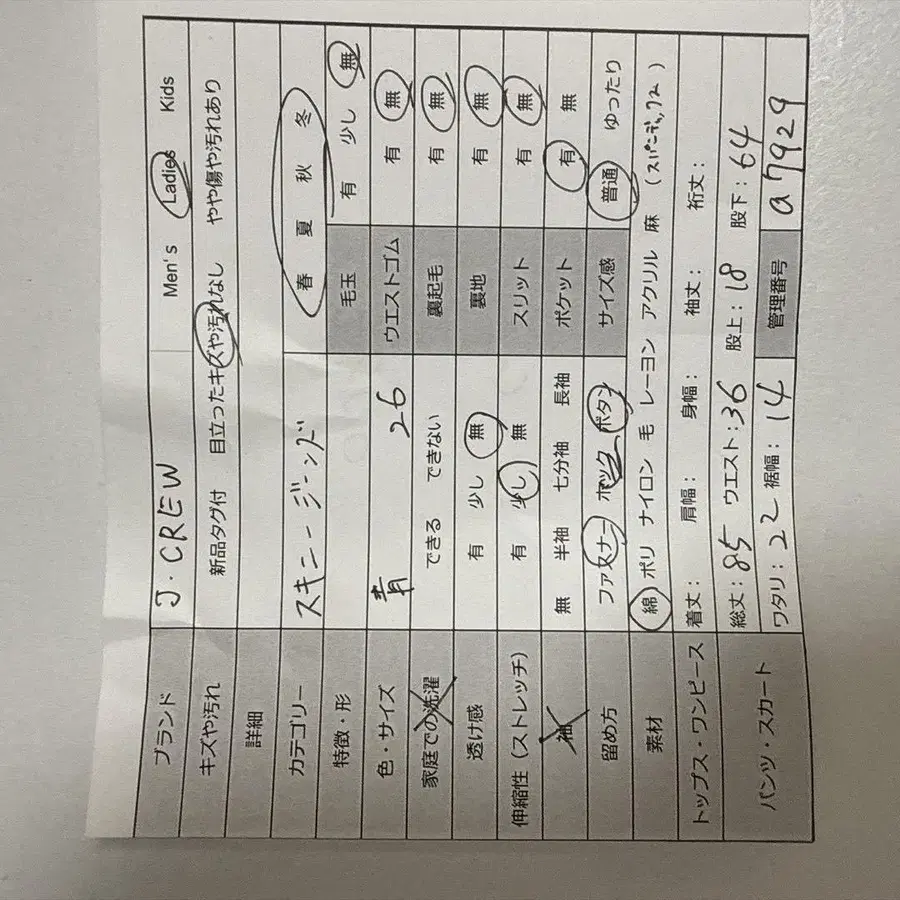 ブランド J.CREW Men's Ladies Kids
キズや汚れ 新品タグ付 目立ったキズや汚れなし やや傷や汚れあり
詳細
カテゴリー スキニージーンズ 春 夏 秋 冬
特徴・形 毛玉 有 少し 無
色・サイズ 青 26 ウエストゴム 有 無
家庭での洗濯 できる できない 裏起毛 有 無
透け感 有 少し 無 裏地 有 無
伸縮性(ストレッチ) 有 少し 無 スリット 有 無
袖 無 半袖 七分袖 長袖 ポケット 有 無
留め方 ファスナー ホック ボタン サイズ感 普通 ゆったり
素材 綿 ポリ ナイロン 毛 レーヨン アクリル 麻 (スパンデックス)
トップス・ワンピース 着丈: 肩幅: 身幅: 袖丈: 裄丈:
パンツ・スカート 総丈:85 ウエスト:36 股上:18 股下:64
ワタリ:22 裾幅:14 管理番号 a7929